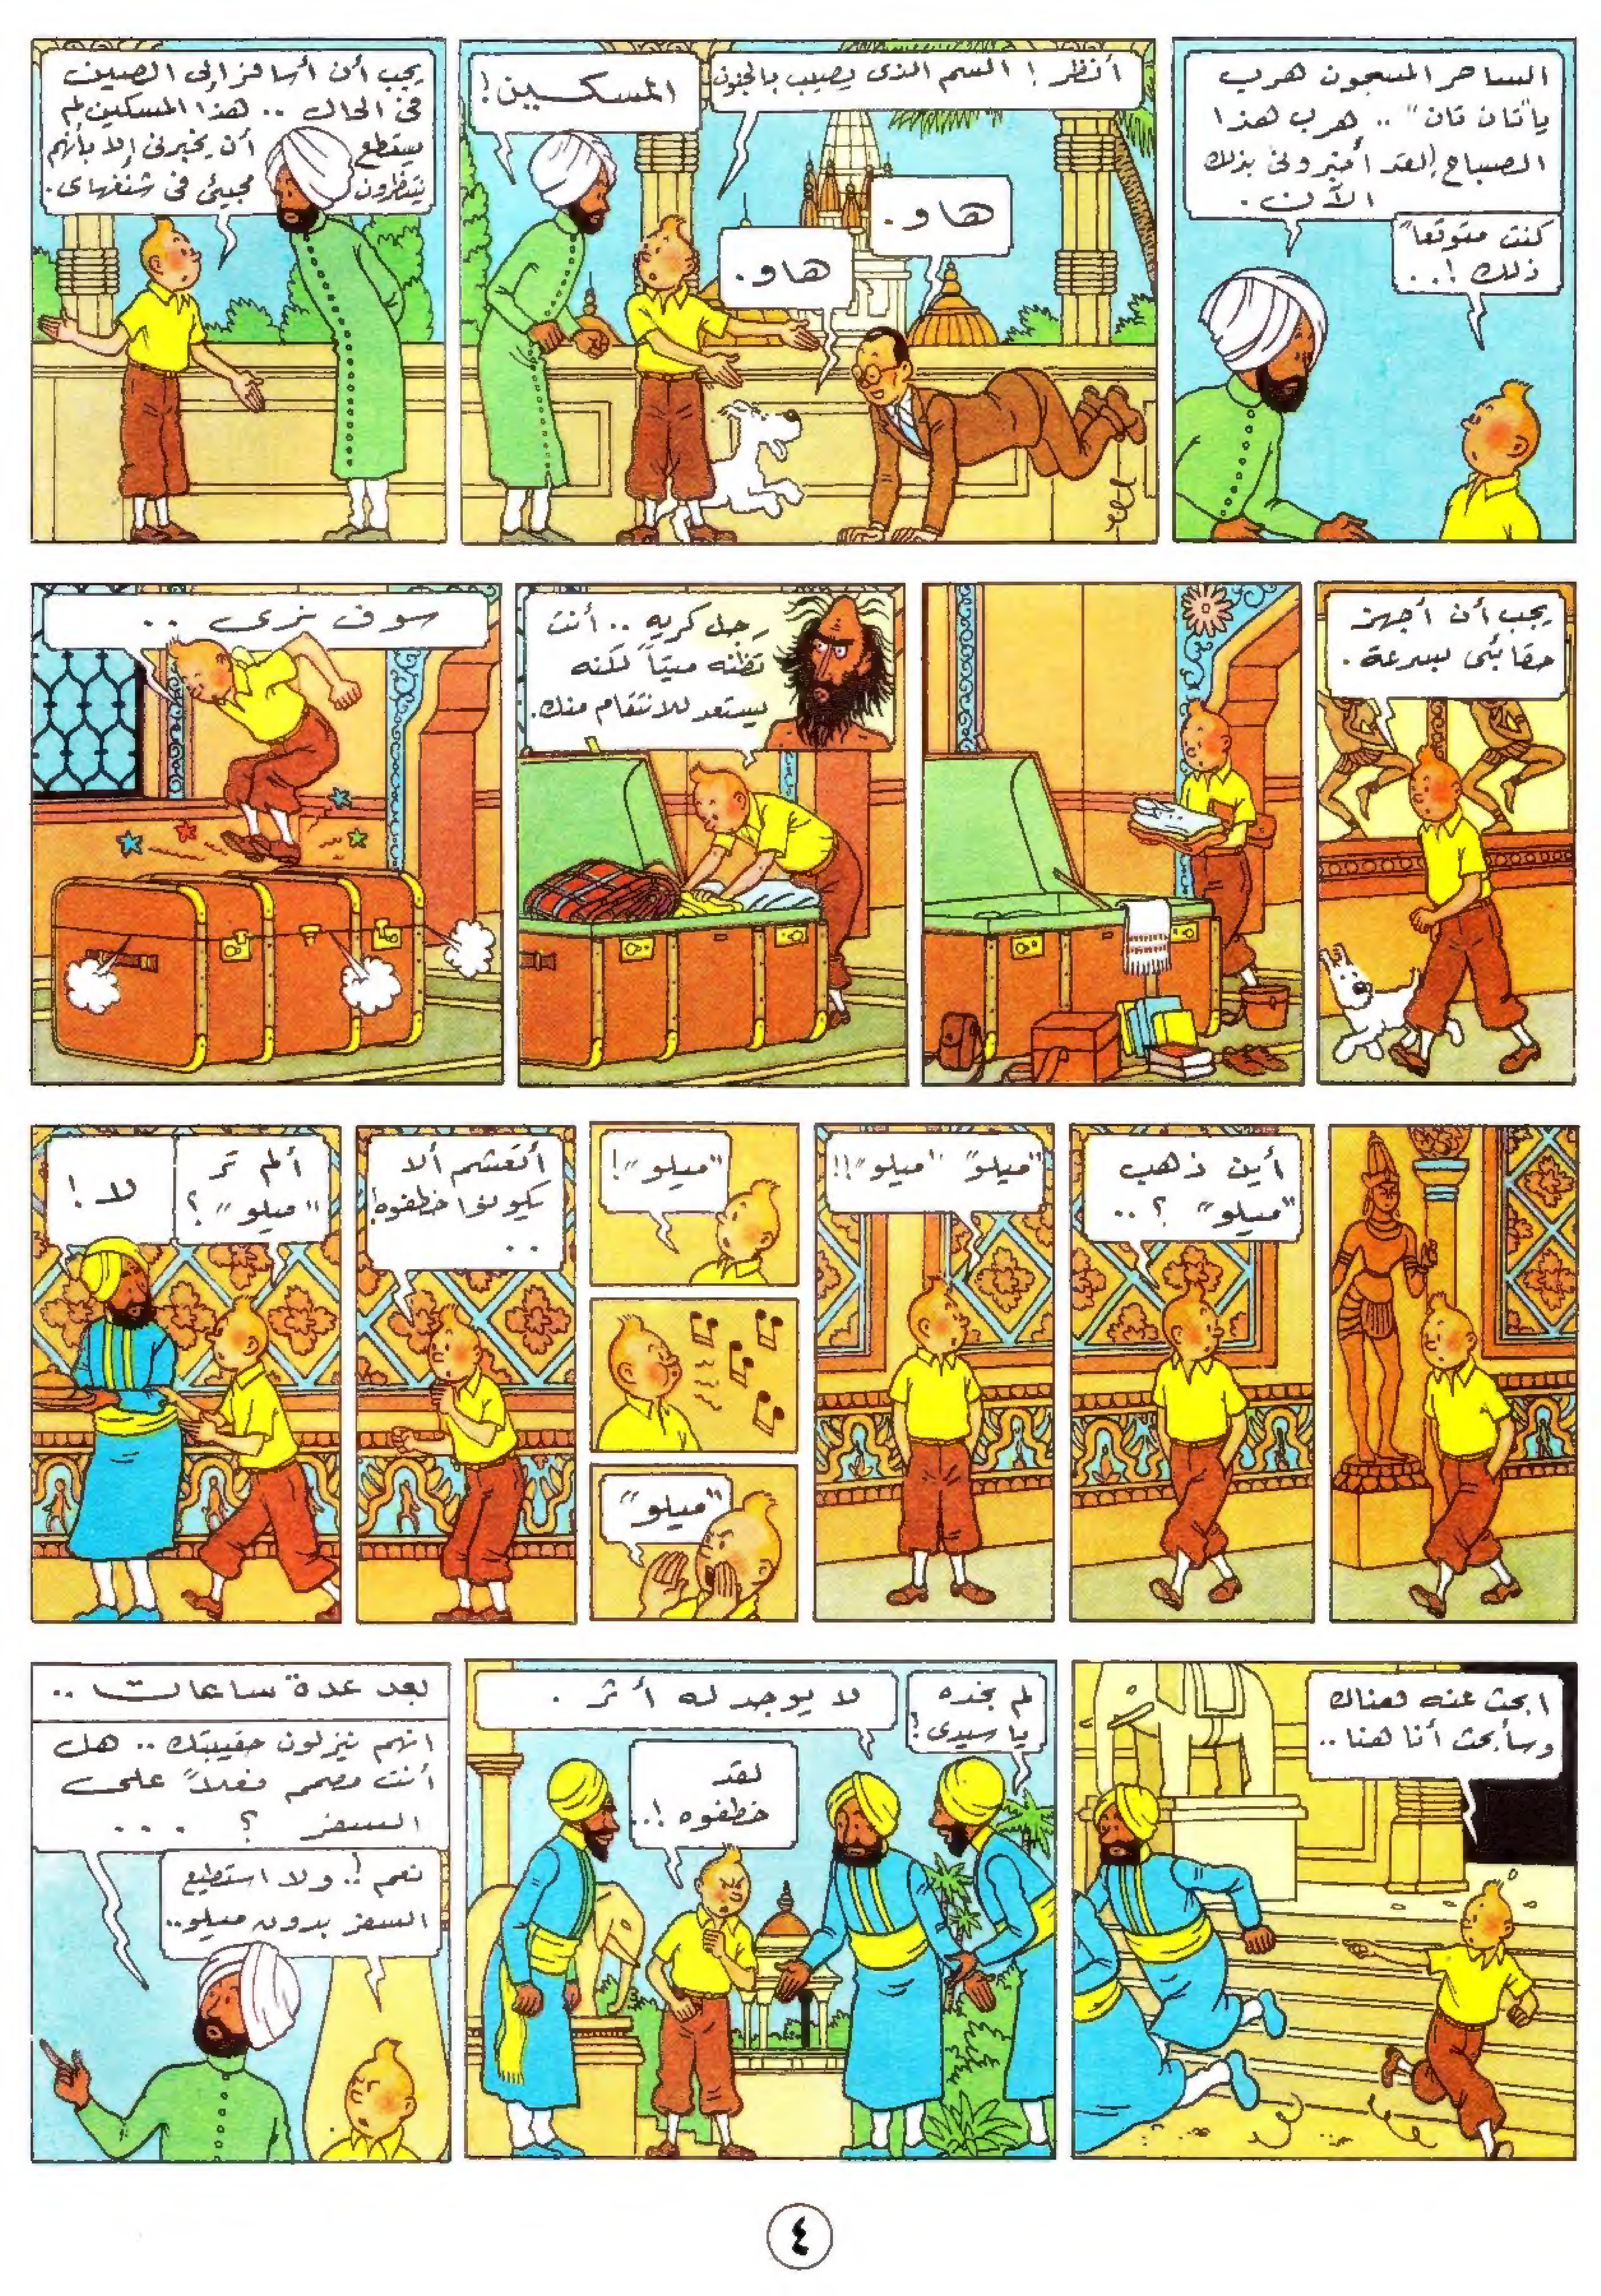 الساحر المسجون هرب
يا "تان تان" .. هرب هذا
الصباح لقد أخبروني بذلك
الآن.
كنت متوقعاً
ذلك !..
أنظر ! السم الذى يصيب بالجنون
المسكين !
هاو.
هاو.
يجب أن أسافر إلى الصين
فى الحال .. هذا المسكين لم
يستطع أن يخبرنى إلا بأنهم
ينتظرون مجيئى فى شنغهاى.
يجب أن أجهز
حقائبى بسرعة.
رجل كريه .. أنت
تظنه ميتاً لكنه
يستعد للانتقام منك.
سوف نرى ..
أين ذهب
"ميلو" ؟ ..
"ميلو" "ميلو"!!
"ميلو"!
"ميلو"
أتعشم ألا
يكونوا خطفوه!
..
ألم تر
"ميلو" ؟
لا !
ابحث عنه هناك
وسأبحث أنا هنا ..
لم نجده
يا سيدى !
لا يوجد له أثر .
لقد
خطفوه !..
بعد عدة ساعات ..
انهم ينزلون حقيبتك .. هل
أنت مصمم فعلاً على
السفر ؟ ...
نعم !. ولا استطيع
السفر بدون ميلو..
٤